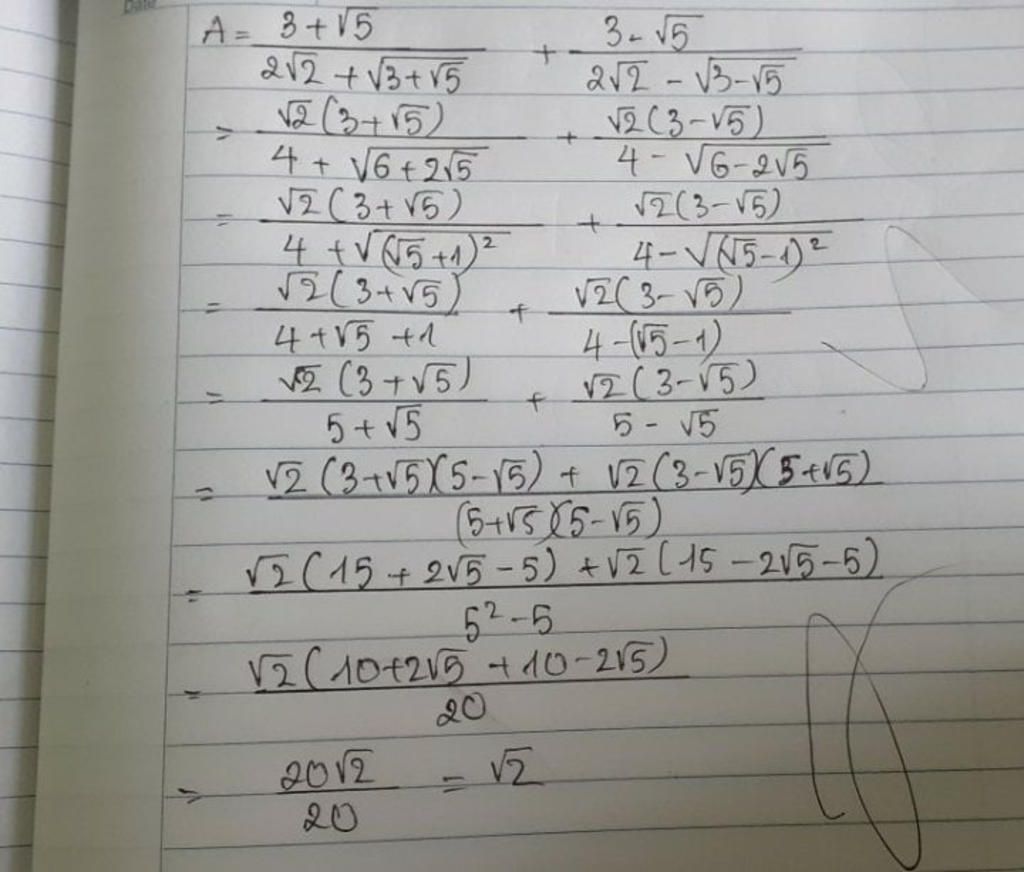 Date
A = (3 + √5)/(2√2 + √(3 + √5)) + (3 - √5)/(2√2 - √(3 - √5))
= √2(3 + √5)/(4 + √(6 + 2√5)) + √2(3 - √5)/(4 - √(6 - 2√5))
= √2(3 + √5)/(4 + √((√5 + 1)²)) + √2(3 - √5)/(4 - √((√5 - 1)²))
= √2(3 + √5)/(4 + √5 + 1) + √2(3 - √5)/(4 - (√5 - 1))
= √2(3 + √5)/(5 + √5) + √2(3 - √5)/(5 - √5)
= (√2(3 + √5)(5 - √5) + √2(3 - √5)(5 + √5))/((5 + √5)(5 - √5))
= (√2(15 + 2√5 - 5) + √2(15 - 2√5 - 5))/(5² - 5)
= √2(10 + 2√5 + 10 - 2√5)/20
= 20√2/20 = √2